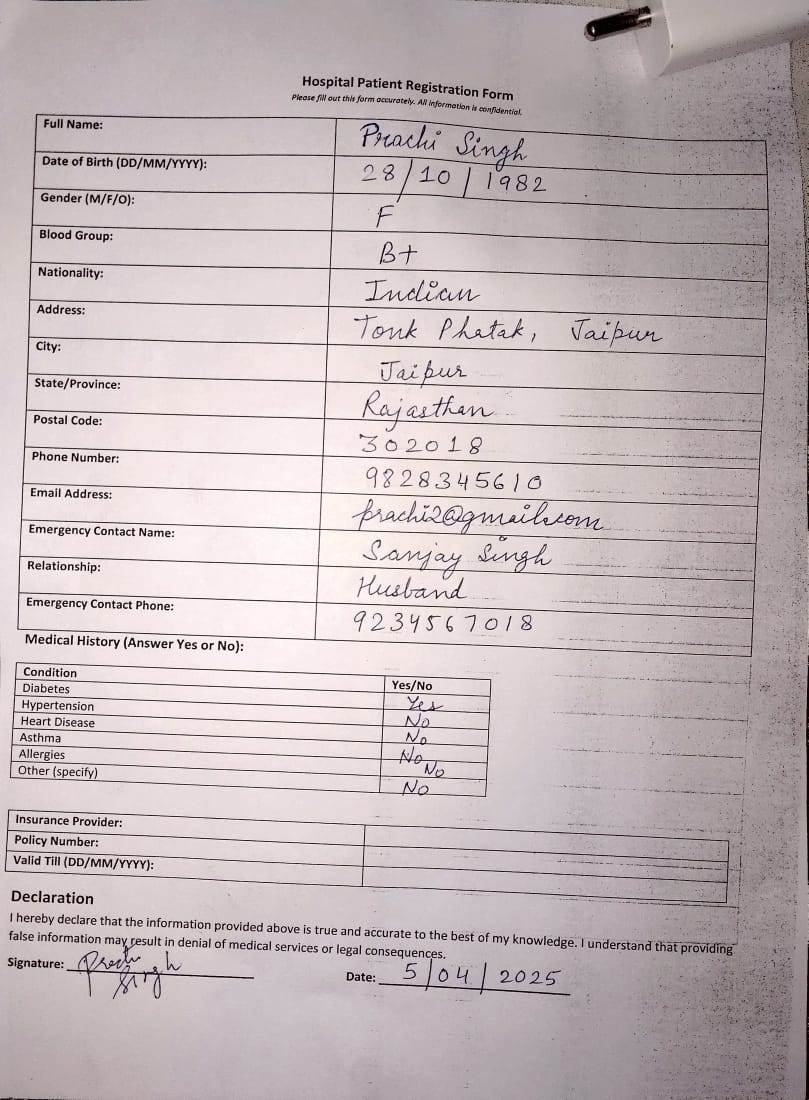 Hospital Patient Registration Form
Please fill out this form accurately. All information is confidential.
Full Name: Prachi Singh
Date of Birth (DD/MM/YYYY): 28/10/1982
Gender (M/F/O): F
Blood Group: B+
Nationality: Indian
Address: Tonk Phatak, Jaipur
City: Jaipur
State/Province: Rajasthan
Postal Code: 302018
Phone Number: 9828345610
Email Address: prachi2@gmail.com
Emergency Contact Name: Sanjay Singh
Relationship: Husband
Emergency Contact Phone: 9234567018
Medical History (Answer Yes or No):
Condition Yes/No
Diabetes Yes
Hypertension No
Heart Disease No
Asthma No
Allergies No
Other (specify) No
Insurance Provider:
Policy Number:
Valid Till (DD/MM/YYYY):
Declaration
I hereby declare that the information provided above is true and accurate to the best of my knowledge. I understand that providing
false information may result in denial of medical services or legal consequences.
Signature: Prachi Singh Date: 5/04/2025